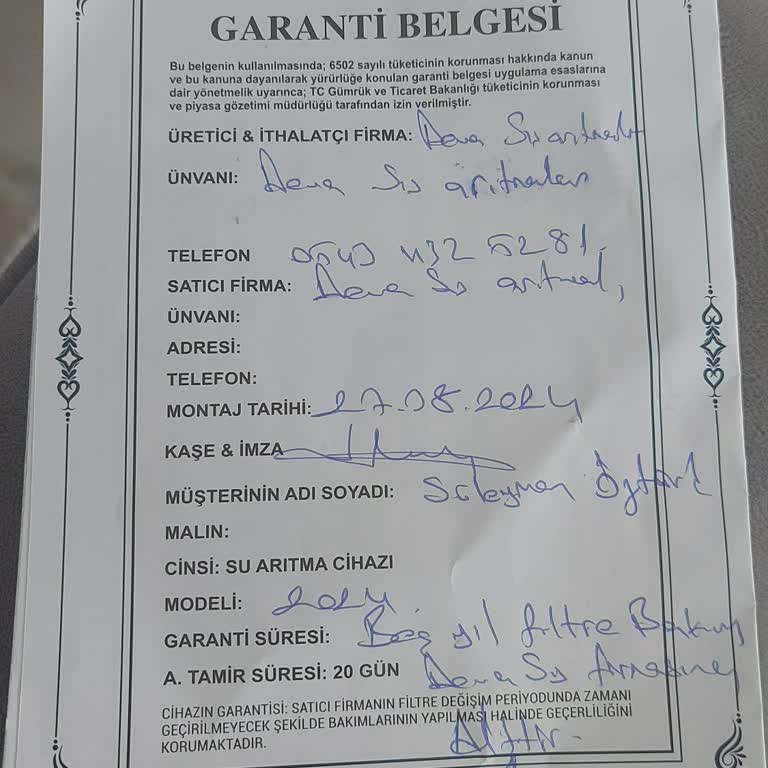 GARANTİ BELGESİ
Bu belgenin kullanılmasında; 6502 sayılı tüketicinin korunması hakkında kanun
ve bu kanuna dayanılarak yürürlüğe konulan garanti belgesi uygulama esaslarına
dair yönetmelik uyarınca; TC Gümrük ve Ticaret Bakanlığı tüketicinin korunması
ve piyasa gözetimi müdürlüğü tarafından izin verilmiştir.
ÜRETİCİ & İTHALATÇI FİRMA: Deva Su
ÜNVANI: Deva Su arıtmaları
TELEFON 0543 432 5281
SATICI FİRMA: Deva Su
ÜNVANI:
ADRESİ:
TELEFON:
MONTAJ TARİHİ: 27.08.2024
KAŞE & İMZA
MÜŞTERİNİN ADI SOYADI: Süleyman Öztürk
MALIN:
CİNSİ: SU ARITMA CİHAZI
MODELİ: 2024
GARANTİ SÜRESİ: Beş yıl filtre Bakım
A. TAMİR SÜRESİ: 20 GÜN Deva Su firmasına
CİHAZIN GARANTİSİ: SATICI FİRMANIN FİLTRE DEĞİŞİM PERİYODUNDA ZAMANI
GEÇİRİLMEYECEK ŞEKİLDE BAKIMLARININ YAPILMASI HALİNDE GEÇERLİLİĞİNİ
KORUMAKTADIR. Aittir.